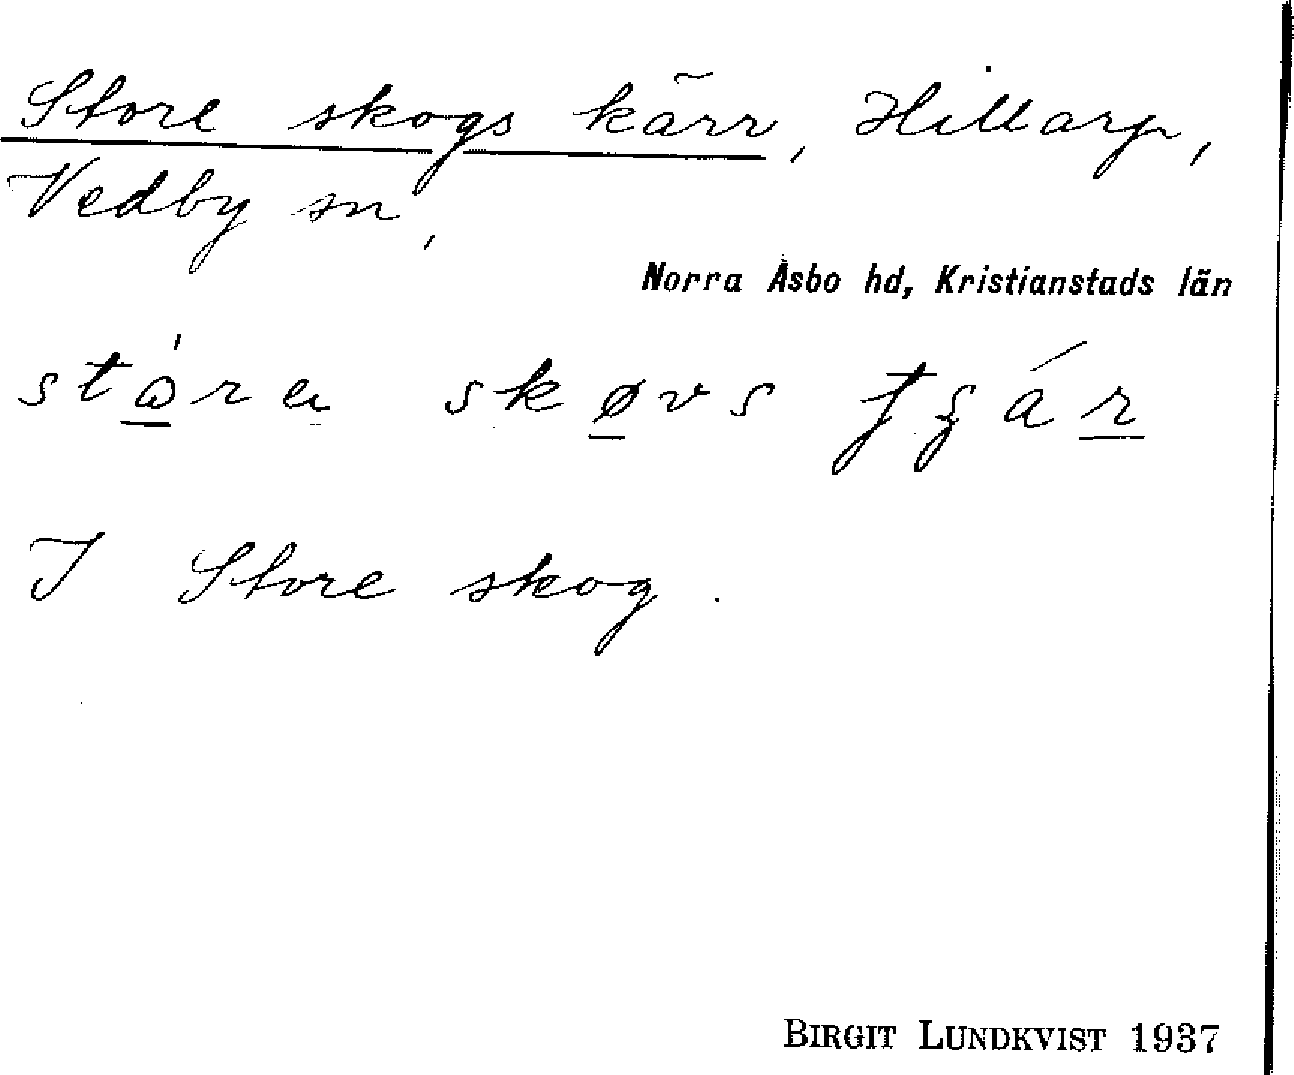 Store skogs kärr, Hillarp,
Vedby sn,
Norra Åsbo hd, Kristianstads län
I Store skog.
BIRGIT LUNDKVIST 1937